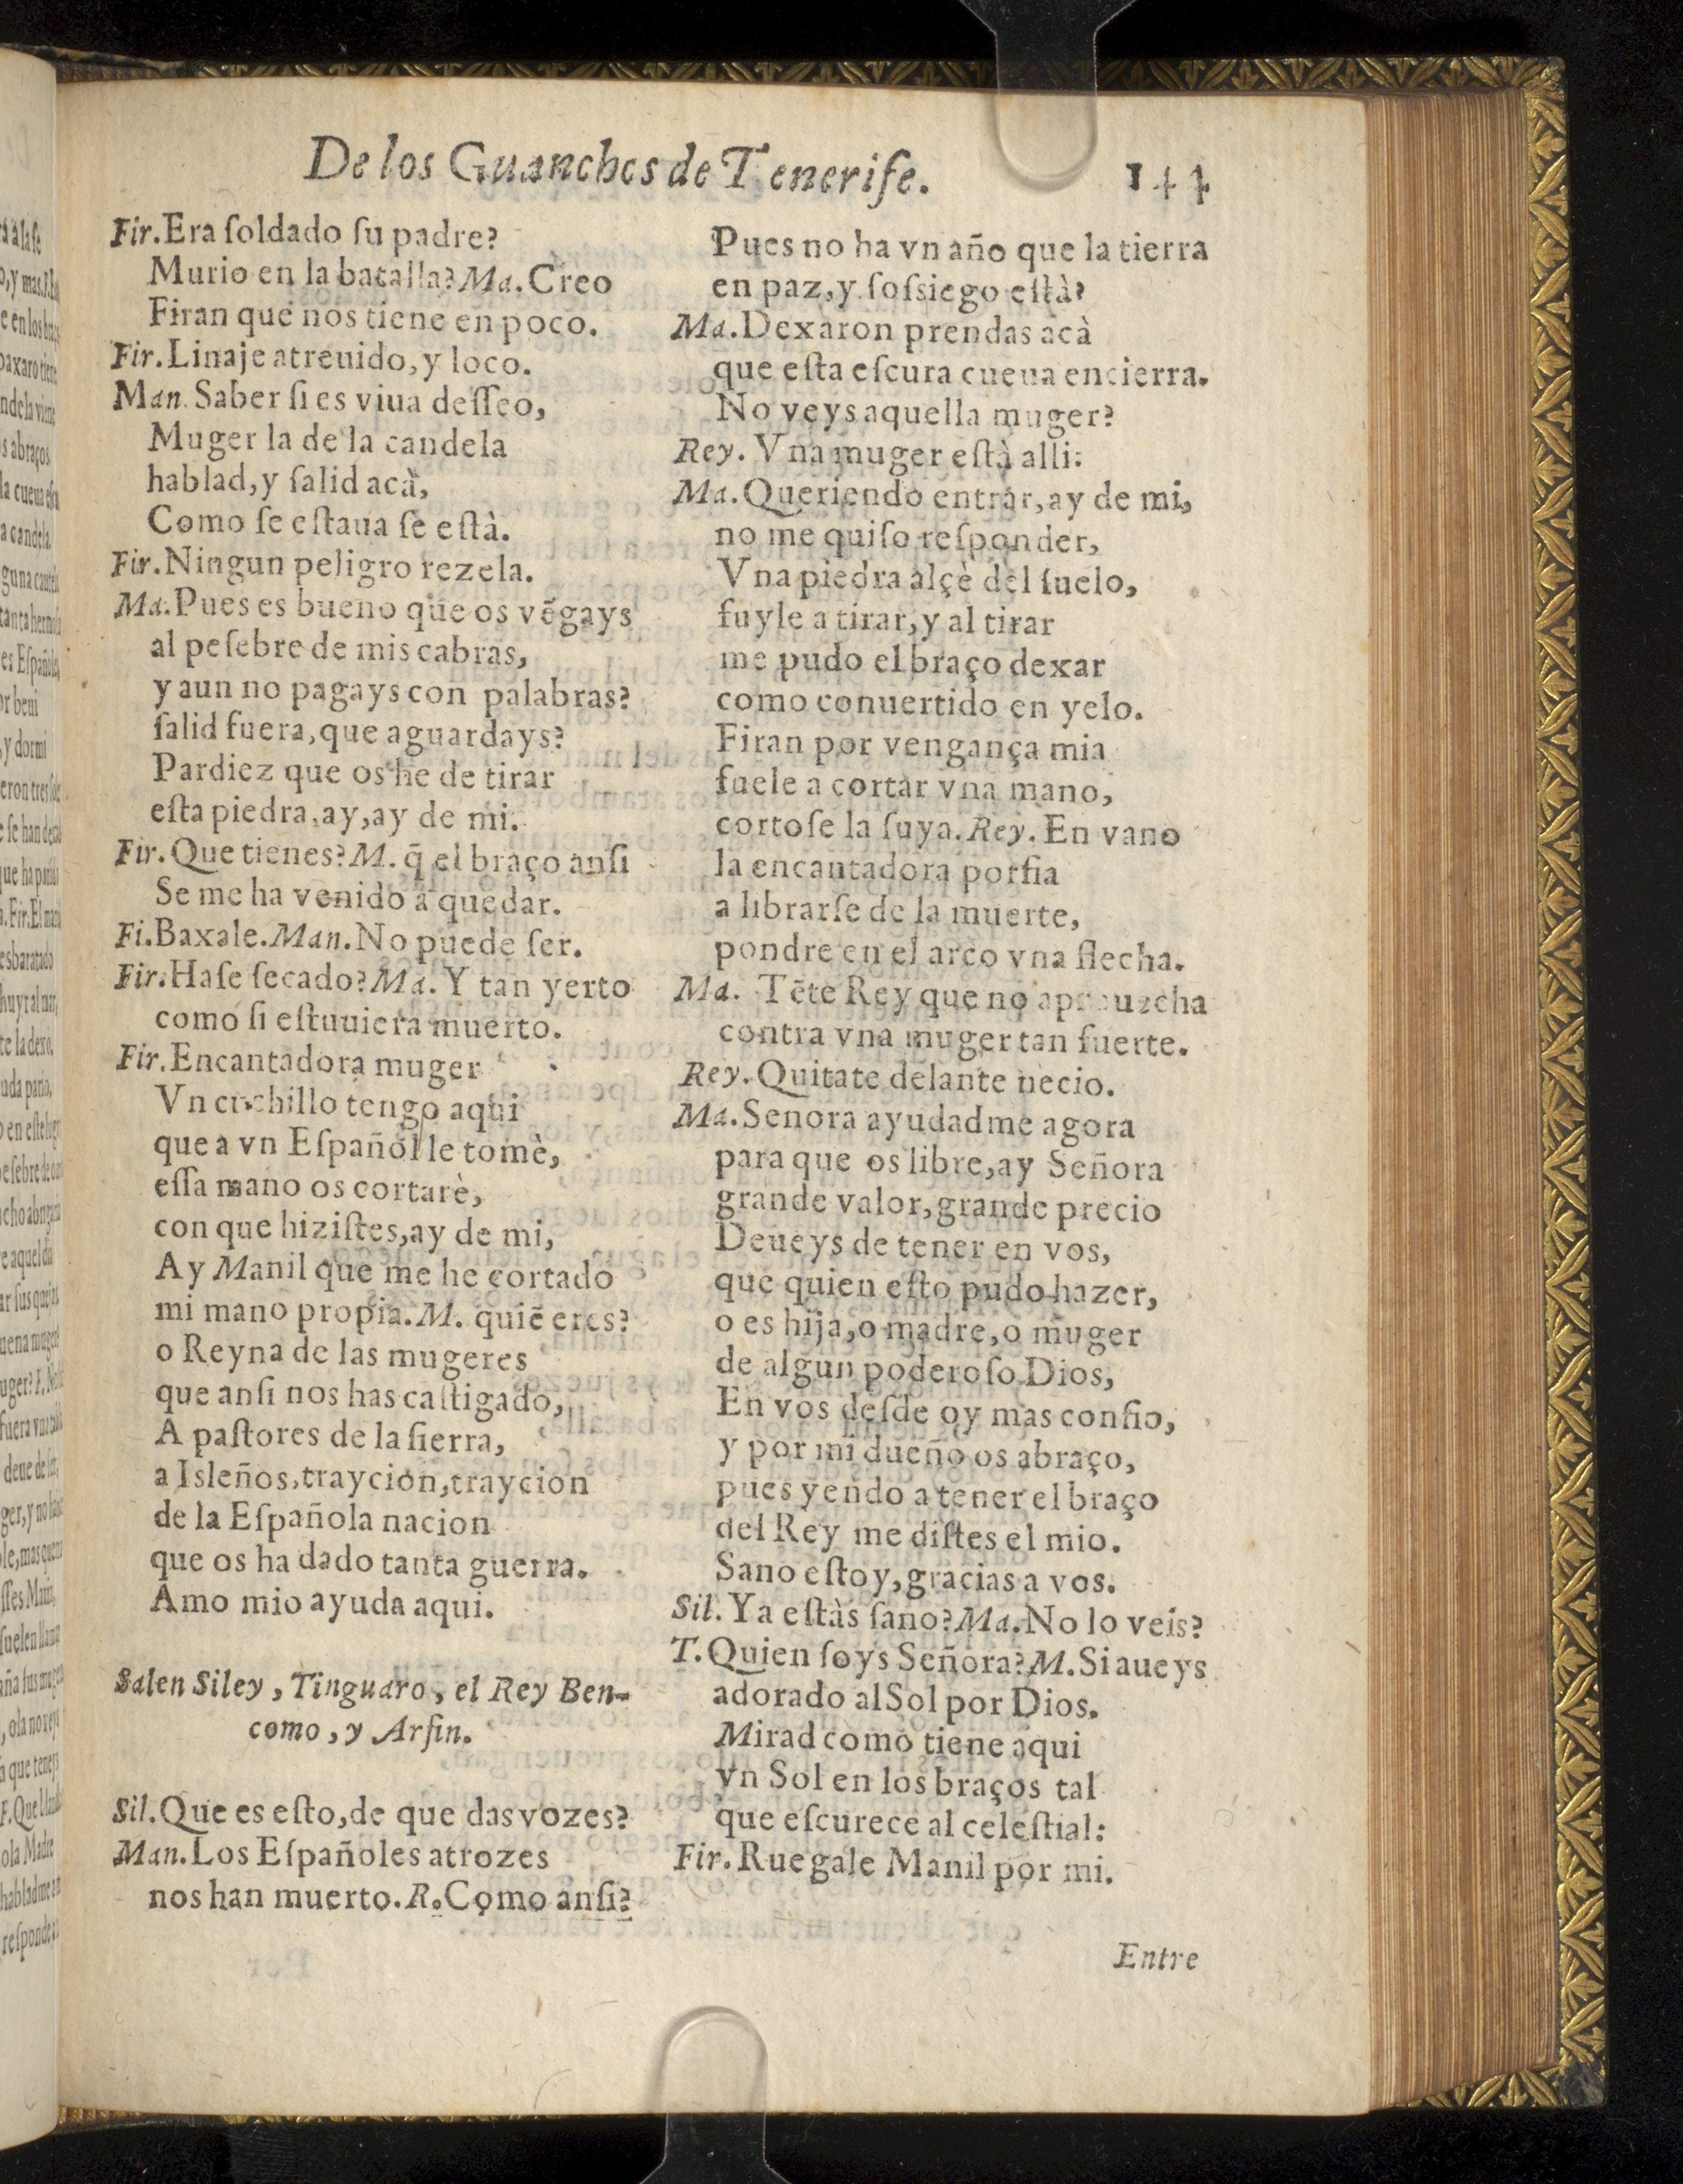 De los Guanches de Tenerife. 144
Fir. Era ſoldado ſu padre?
Murio en la batalla? Ma. Creo
Firan que nos tiene en poco.
Fir. Linaje atreuido, y loco.
Man. Saber ſi es viua deſſeo,
Muger la de la candela
hablad, y ſalid acà,
Como ſe eſtaua ſe eſtà.
Fir. Ningun peligro rezela.
Ma. Pues es bueno que os vẽgays
al peſebre de mis cabras,
y aun no pagays con palabras?
ſalid fuera, que aguardays?
Pardiez que os he de tirar
eſta piedra, ay, ay de mi.
Fir. Que tienes? M. q̃ el braço anſi
Se me ha venido a quedar.
Fi. Baxale. Man. No puede ſer.
Fir. Haſe ſecado? Ma. Y tan yerto
como ſi eſtuuiera muerto.
Fir. Encantadora muger
Vn cuchillo tengo aqui
que a vn Eſpañol le tomè,
eſſa mano os cortarè,
con que hiziſtes, ay de mi,
Ay Manil que me he cortado
mi mano propia. M. quiẽ eres?
o Reyna de las mugeres
que anſi nos has caſtigado,
A paſtores de la ſierra,
a Isleños, traycion, traycion
de la Eſpañola nacion
que os ha dado tanta guerra.
Amo mio ayuda aqui.
Salen Siley, Tinguaro, el Rey Ben-
como, y Arfin.
Sil. Que es eſto, de que das vozes?
Man. Los Eſpañoles atrozes
nos han muerto. R. Como anſi?
Pues no ha vn año que la tierra
en paz, y ſoſsiego eſtà?
Ma. Dexaron prendas acà
que eſta eſcura cueua encierra.
No veys aquella muger?
Rey. Vna muger eſtà alli:
Ma. Queriendo entrar, ay de mi,
no me quiſo reſponder,
Vna piedra alçè del ſuelo,
fuyle a tirar, y al tirar
me pudo el braço dexar
como conuertido en yelo.
Firan por vengança mia
fuele a cortar vna mano,
cortoſe la ſuya. Rey. En vano
la encantadora porfia
a librarſe de la muerte,
pondre en el arco vna flecha.
Ma. Tẽte Rey que no aprouecha
contra vna muger tan fuerte.
Rey. Quitate delante necio.
Ma. Senora ayudadme agora
para que os libre, ay Señora
grande valor, grande precio
Deueys de tener en vos,
que quien eſto pudo hazer,
o es hija, o madre, o muger
de algun poderoſo Dios,
En vos deſde oy mas confio,
y por mi dueño os abraço,
pues yendo a tener el braço
del Rey me diſtes el mio.
Sano eſtoy, gracias a vos.
Sil. Ya eſtàs ſano? Ma. No lo veis?
T. Quien ſoys Señora? M. Si aueys
adorado al Sol por Dios.
Mirad como tiene aqui
vn Sol en los braços tal
que eſcurece al celeſtial:
Fir. Ruegale Manil por mi.
Entre